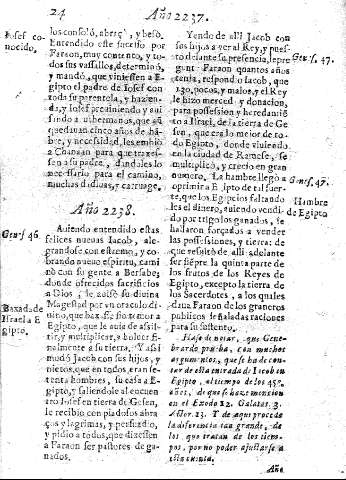 24
Año 2237.
Iosef co-
nocido.
los consoló, abraçò, y besò.
Entendido este sucesso por
Faraon, muy contento, y to-
dos sus vassallos, determinò,
y mandò, que viniessen a E-
gipto el padre de Iosef con
toda su parentela, y hazien-
da, y Iosef previniendo y aui-
sando a sus hermanos, que aũ
quedauan cinco años de hã-
bre, y necessidad, les embiò
a Chanaan para que traxes-
sen a su padre, dandoles lo
necessario para el camino,
muchas dadiuas, y carruage.
Año 2238.
Genes. 46.
Auiendo entendido estas
felices nueuas Iacob, ale-
grandose con estremo, y co-
brando nueuo espiritu, cami
nò con su gente a Bersabe;
donde ofrecidos sacrificios
a Dios, le auisò su diuina
Magestad por vn oraculo di-
uino, que baxasse sin temor a
Egipto, que le auia de assis-
tir, y multiplicar, a boluer fi-
nalmente a su tierra. Y assi
Baxada de
Israel a E
gipto.
mudò Iacob con sus hijos, y
nietos, que en todos, eran se-
tenta hombres, su casa a E-
gipto, y saliendole al encuen
tro Iosef en tierra de Gesen,
le recibio con piadosos abra
ços y lagrimas, y persuadio,
y pidio a todos, que dixessen
a Faraon ser pastores de ga-
nados.
Yendo de allí Iacob con
sus hijos a ver al Rey, y pues-
to delante su presencia, le pre
guntò Faraon quantos años
Genes. 47.
tenia, respondio Iacob, que
130. pocos, y malos, y el Rey
le hizo merced y donacion,
para possession y heredamiẽ
to a Israel, de la tierra de Ge-
sen, que era lo mejor de to-
do Egipto, donde viuiendo
en la ciudad de Ramese, se
multiplicò, y crecio en gran
numero. La hambre llegò a
Genes. 47.
oprimir a Egipto de tal suer-
te, que los Egipcios faltando
Hambre
de Egipto
les el dinero, auiendo vendi-
do por trigo los ganados, se
hallaron forçados a vender
las possessiones, y tierra: de
que resultò de alli adelante
ser siẽpre la quinta parte de
los frutos de los Reyes de
Egipto, excepto la tierra de
los Sacerdotes, a los quales
daua Faraon de los graneros
publicos señaladas raciones
para su sustento.
Hase de notar, que Gene-
brardo prueba, con muchos
argumentos, que se ha de con-
tar de esta entrada de Iacob en
Egipto, al tiempo de los 430.
años, de que se haze mencion
en el Exodo 12. Galatas. 3.
Actor. 13. Y de aqui procede
la diferencia tan grande, de
los que tratan de los tiem-
pos, por no poder ajustarse a
esta cuenta.
Año